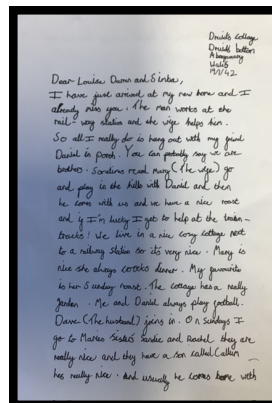 Druids cottage
Druids bottom
Abergavenny
Wales
19/1/42
Dear Louise Damn and Simba,
I have just arrived at my new home and I
already miss you. The man works at the
rail-way station and the wife helps him.
So all I really do is hang out with my friend
Daniel in Porch. You can probably say we are
brothers. Sometimes read Mary (The wife) go
and play in the hills with Daniel and then
he comes with us and we have a nice roast
and if I'm lucky I get to help at the train-
tracks! We live in a nice cosy cottage next
to a railway station so its very nice. Mary is
nice she always cooks dinner. My favourite
is her Sunday roast. The cottage has a really
garden. Me and Daniel always play football.
Dave (The husband) joins in. On Sundays I
go to Maries sisters Sandie and Rachel they are
really nice and they have a son called Callum
hes really nice. And usually he comes home with